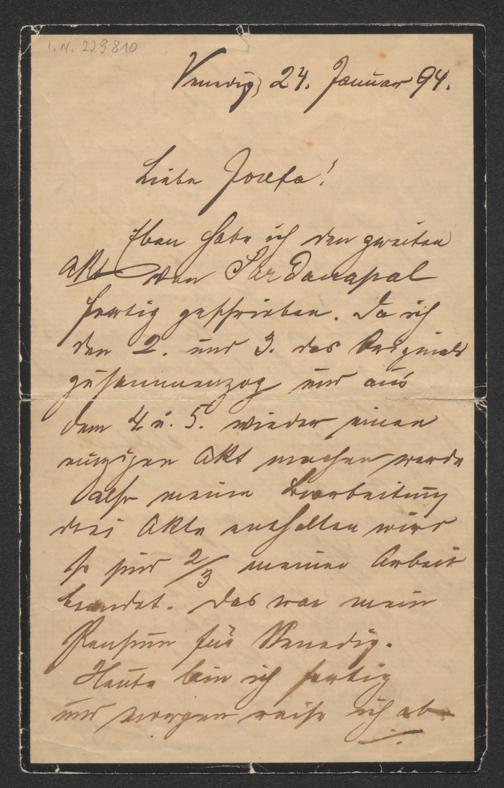 I.N. 229810
Venedig, 24. Januar 94.
Liebe Josefa!
Eben habe ich den zweiten
Akt von Sardanapal
fertig geschrieben. Da ich
den 2. und 3. des Originals
zusammenzog und aus
dem 4 u. 5. wieder einen
einzigen Akt machen werde
also meine Bearbeitung
drei Akte enthalten wird
so sind 2/3 meiner Arbeit
beendet. Das war mein
Pensum für Venedig.
Heute bin ich fertig
und morgen reise ich ab